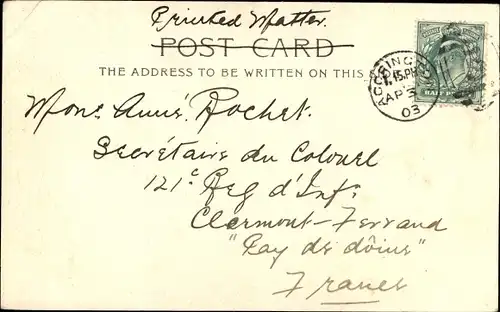 Printed Matter.
POST CARD
THE ADDRESS TO BE WRITTEN ON THIS
ACCRINGTON
1.15.PM
AP 3
03
HALF PENNY
Mons. Aimé Rochet.
Secrétaire du Colonel
121e Reg d'Infie
Clermont-Ferrand
"Puy de dôme"
France